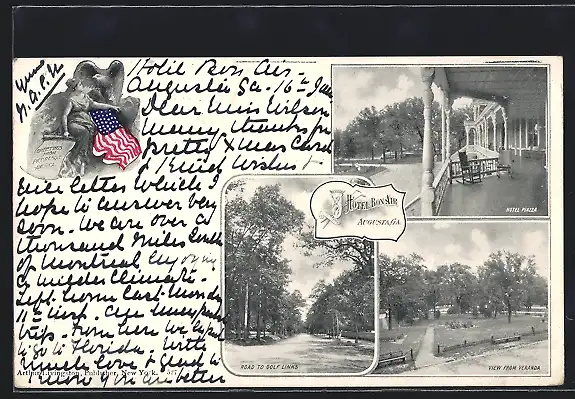 Yours
Hotel Bon Air
Augusta Ga - 16th Jan
Dear Miss Wilson
Many thanks for
pretty Xmas Card
& kind wishes &
nice letter which I
hope to answer very
soon. We are over a
thousand miles South
of Montreal enjoying
a milder Climate -
Left home last Monday
11th inst.
trip. From here we expect
to go to Florida. With
much love & glad to
know you are better
GREETINGS FROM PICTURESQUE AMERICA
HOTEL BON-AIR
AUGUSTA, GA.
HOTEL PIAZZA
ROAD TO GOLF LINKS
VIEW FROM VERANDA
Arthur Livingston, Publisher, New York. 527